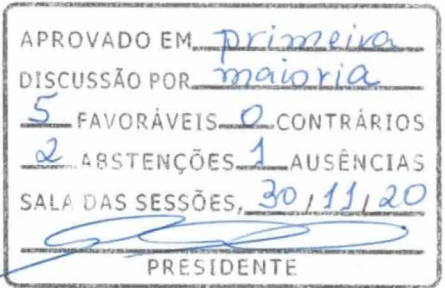 APROVADO EM primeira
DISCUSSÃO POR maioria
5 FAVORÁVEIS 0 CONTRÁRIOS
2 ABSTENÇÕES 1 AUSÊNCIAS
SALA DAS SESSÕES, 30/11/20
PRESIDENTE